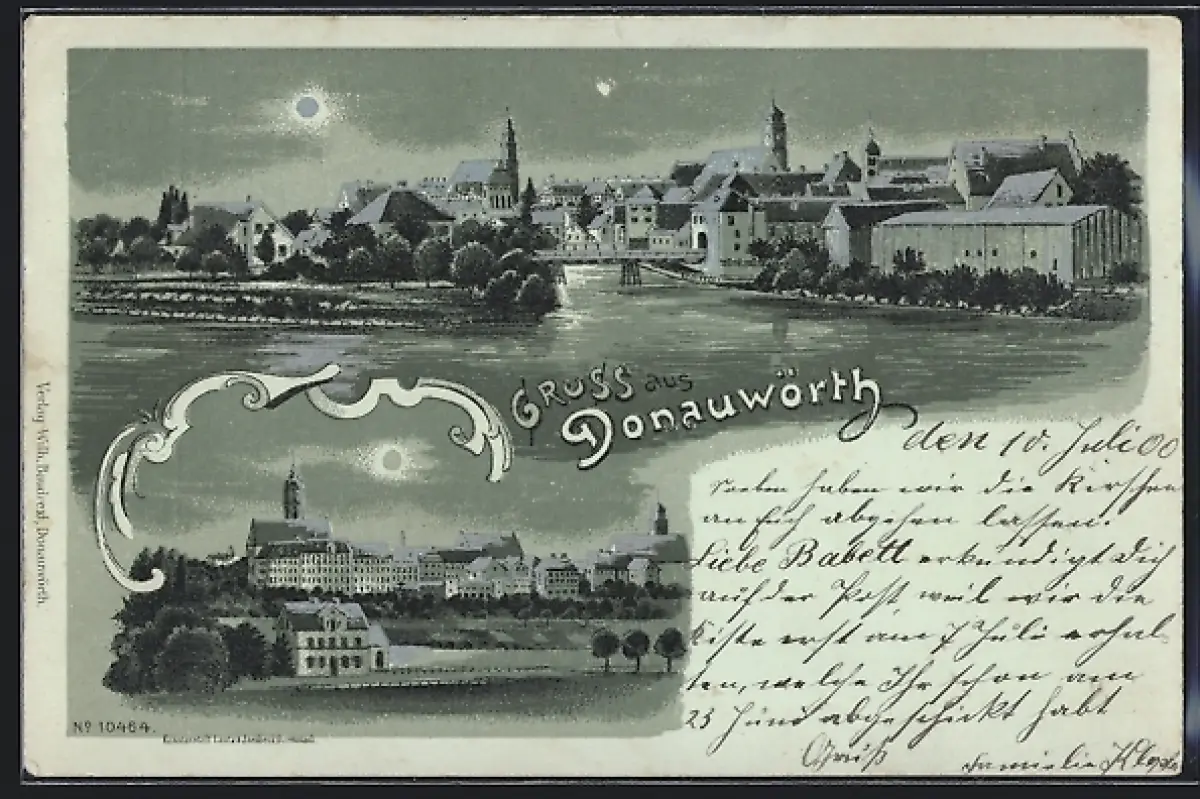 GRUSS aus
Donauwörth
den 10. Juli 00
Soeben haben wir die Kirschen
an Euch abgehen lassen.
Liebe Babett erkündigt Dich
auf der Post, weil wir die
Kiste erst am 7 Juli erhal-
ten, welche Ihr schon am
23 Juni abgeschickt habt
Gruß
Familie
Verlag Wilh. Donauwörth.
No 10464.